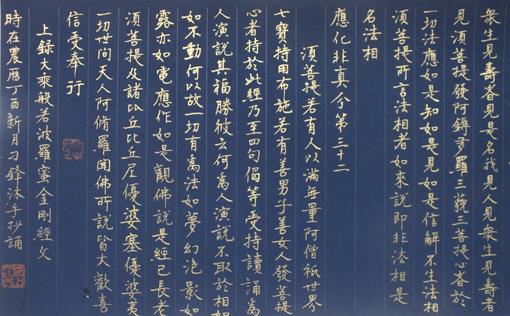 衆生見壽者見是名我見人見衆生見壽者
見須菩提發阿耨多羅三藐三菩提心者於
一切法應如是知如是見如是信解不生法相
須菩提所言法相者如來說即非法相是
名法相
應化非真分第三十二
須菩提若有人以滿無量阿僧祇世界
七寶持用布施若有善男子善女人發菩提
心者持於此經乃至四句偈等受持讀誦爲
人演說其福勝彼云何爲人演說不取於相如
如不動何以故一切有爲法如夢幻泡影如
露亦如電應作如是觀佛說是經已長老
須菩提及諸比丘比丘尼優婆塞優婆夷
一切世间天人阿脩羅聞佛所說皆大歡喜
信受奉行
上録大乘般若波羅蜜金剛經文
時在農曆丁酉新月刁鋒沐手抄誦